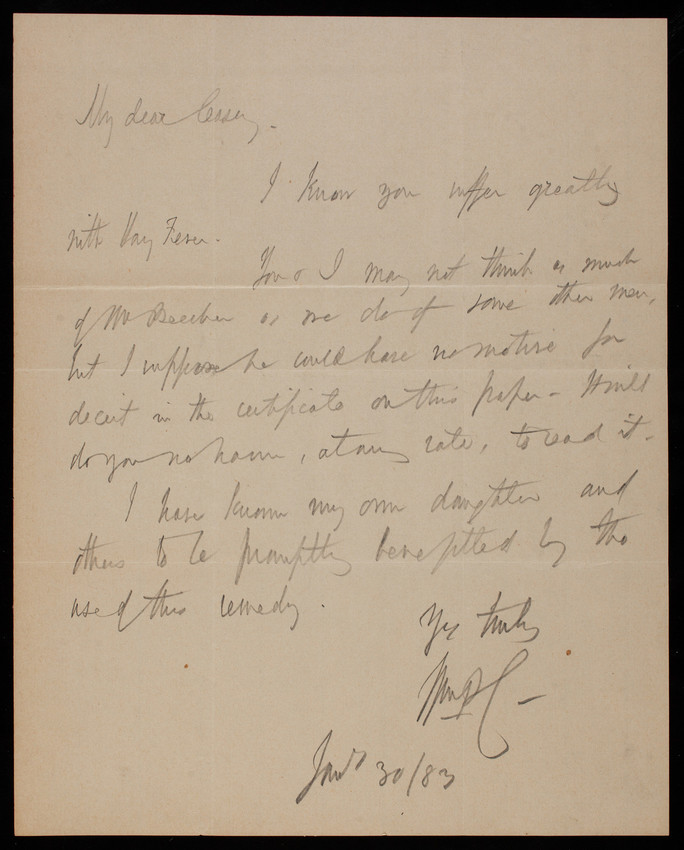 My dear Casey.
I know you suffer greatly
with Hay Fever.
You & I may not think as much
of Mr Beecher as we do of some other men,
but I suppose he could have no motive for
deceit in the certificate on this paper - It will
do you no harm, at any rate, to read it.
I have known my own daughter and
others to be promptly benefitted by the
use of this remedy.
Yrs truly
Jany 30/83